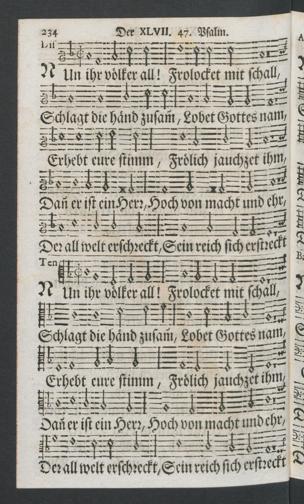 234 Der XLVII. 47. Psalm.
NUn ihr völker all! Frolocket mit schall,
Schlagt die händ zusam̃, Lobet Gottes nam,
Erhebt eure stimm, Frölich jauchzet ihm,
Dañ er ist ein Herr, Hoch von macht und ehr,
Der all welt erschreckt, Sein reich sich erstreckt
Ten
NUn ihr völker all! Frolocket mit schall,
Schlagt die händ zusam̃, Lobet Gottes nam,
Erhebt eure stimm, Frölich jauchzet ihm,
Dañ er ist ein Herr, Hoch von macht und ehr,
Der all welt erschreckt, Sein reich sich erstreckt